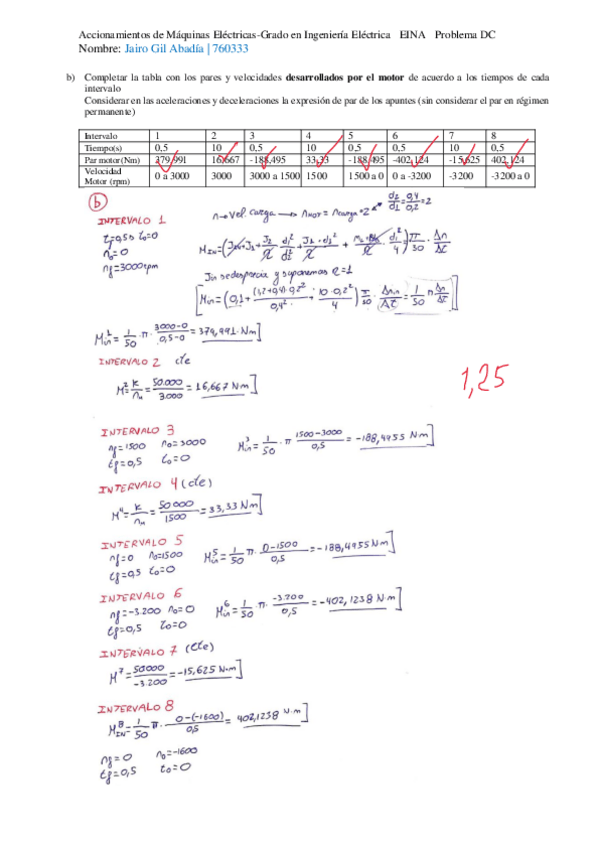 Accionamientos de Máquinas Eléctricas-Grado en Ingeniería Eléctrica EINA Problema DC
Nombre: Jairo Gil Abadía | 760333
b) Completar la tabla con los pares y velocidades desarrollados por el motor de acuerdo a los tiempos de cada
intervalo
Considerar en las aceleraciones y deceleraciones la expresión de par de los apuntes (sin considerar el par en régimen
permanente)
Intervalo 1 2 3 4 5 6 7 8
Tiempo(s) 0,5 10 0,5 10 0,5 0,5 10 0,5
Par motor(Nm) 379,991 16,667 -188,495 33,33 -188,495 -402,124 -15,625 402,124
Velocidad
Motor (rpm) 0 a 3000 3000 3000 a 1500 1500 1500 a 0 0 a -3200 -3200 -3200 a 0
b
INTERVALO 1
n→vel. carga → nmot = ncarga·2 d2/d1 = 0,4/0,2 = 2
t0=0
n0=0
nf=3000rpm
Sin se desprecia y suponemos η=1
M¹in = 1/50 · π · 3000-0/0,5-0 = 379,991 N·m]
INTERVALO 2 cte
M² = k/nm = 50.000/3.000 = 16,667 Nm]
1,25
INTERVALO 3
nf=1500 n0=3000
tf=0,5 t0=0
M³in = 1/50 · π 1500-3000/0,5 = -188,4955 N·m]
INTERVALO 4 (cte)
M⁴ = k/nm = 50000/1500 = 33,33 Nm]
INTERVALO 5
nf=0 n0=1500
tf=0,5 t0=0
M⁵in = 1/50 π · 0-1500/0,5 = -188,4955 Nm]
INTERVALO 6
nf=-3.200 n0=0
tf=0,5 t0=0
M⁶in = 1/50 · π · -3.200/0,5 = -402,1238 N·m]
INTERVALO 7 (cte)
M⁷ = 50000/-3.200 = -15,625 N·m]
INTERVALO 8
M⁸IN = 1/50 π · 0-(-1600)/0,5 = 402,1238 N·m]
nf=0 n0=-1600
tf=0,5 t0=0